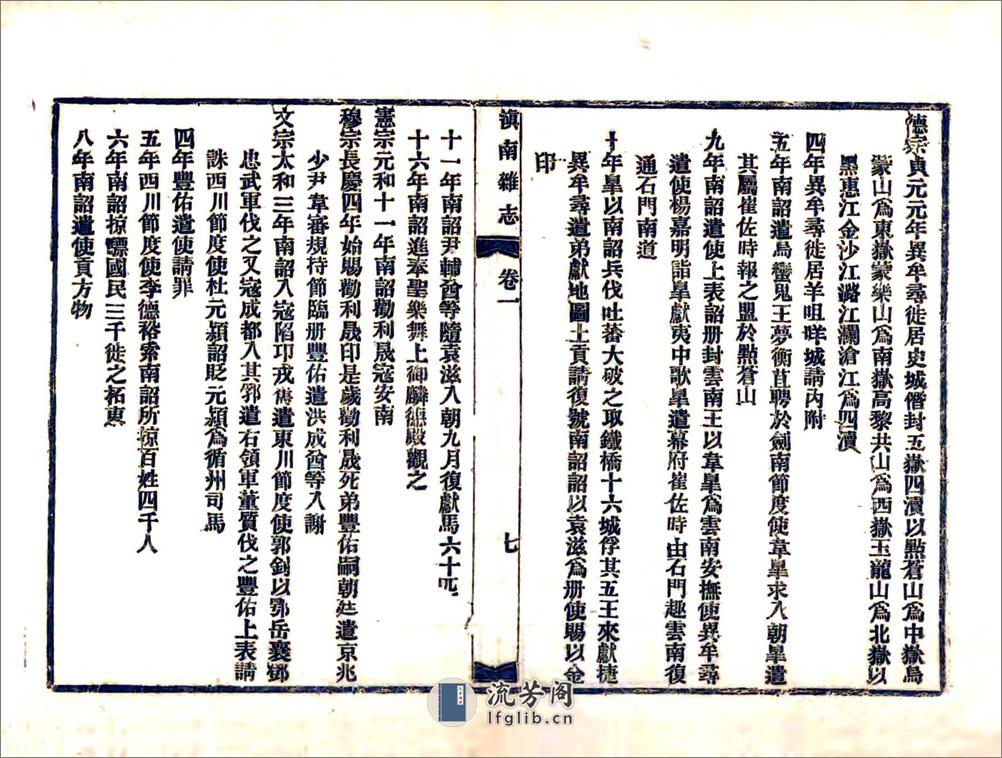 德宗貞元元年異牟尋徙居史城僭封五嶽四瀆以點蒼山爲中嶽烏
蒙山爲東嶽蒙樂山爲南嶽高黎共山爲西嶽玉龍山爲北嶽以
黑惠江金沙江潞江瀾滄江爲四瀆
四年異牟尋徙居羊咀咩城請內附
五年南詔遣烏蠻鬼王夢衡苴聘於劍南節度使韋皐求入朝皐遣
其屬崔佐時報之盟於點蒼山
九年南詔遣使上表詔册封雲南王以韋皐爲雲南安撫使異牟尋
遣使楊嘉明詣皐獻夷中歌皐遣幕府崔佐時由石門趣雲南復
通石門南道
十年皐以南詔兵伐吐蕃大破之取鐵橋十六城俘其五王來獻捷
異牟尋遣弟獻地圖土貢請復號南詔詔以袁滋爲册使賜以金
印
滇南雜志
卷一
七
十一年南詔尹輔酋等隨袁滋入朝九月復獻馬六十匹
十六年南詔進奉聖樂舞上御麟德殿觀之
憲宗元和十一年南詔勸利晟寇安南
穆宗長慶四年始賜勸利晟印是歲勸利晟死弟豐佑嗣朝廷遣京兆
少尹韋審規持節臨册豐佑遣洪成酋等入謝
文宗太和三年南詔入寇陷卭戎嶲遣東川節度使郭釗以鄂岳襄鄧
忠武軍伐之又寇成都入其郛遣右領軍董質伐之豐佑上表請
誅西川節度使杜元潁詔貶元潁爲循州司馬
四年豐佑遣使請罪
五年西川節度使李德裕索南詔所掠百姓四千人
六年南詔掠驃國民三千徙之拓東
八年南詔遣使貢方物
流芳阁
lfglib.cn